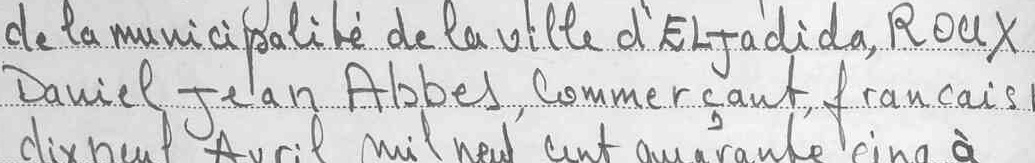 de la municipalité de la ville d'EL Jadida, ROUX
Daniel Jean Abbes, Commerçant, francais
dix neuf Avril mil neuf cent quarante cinq à